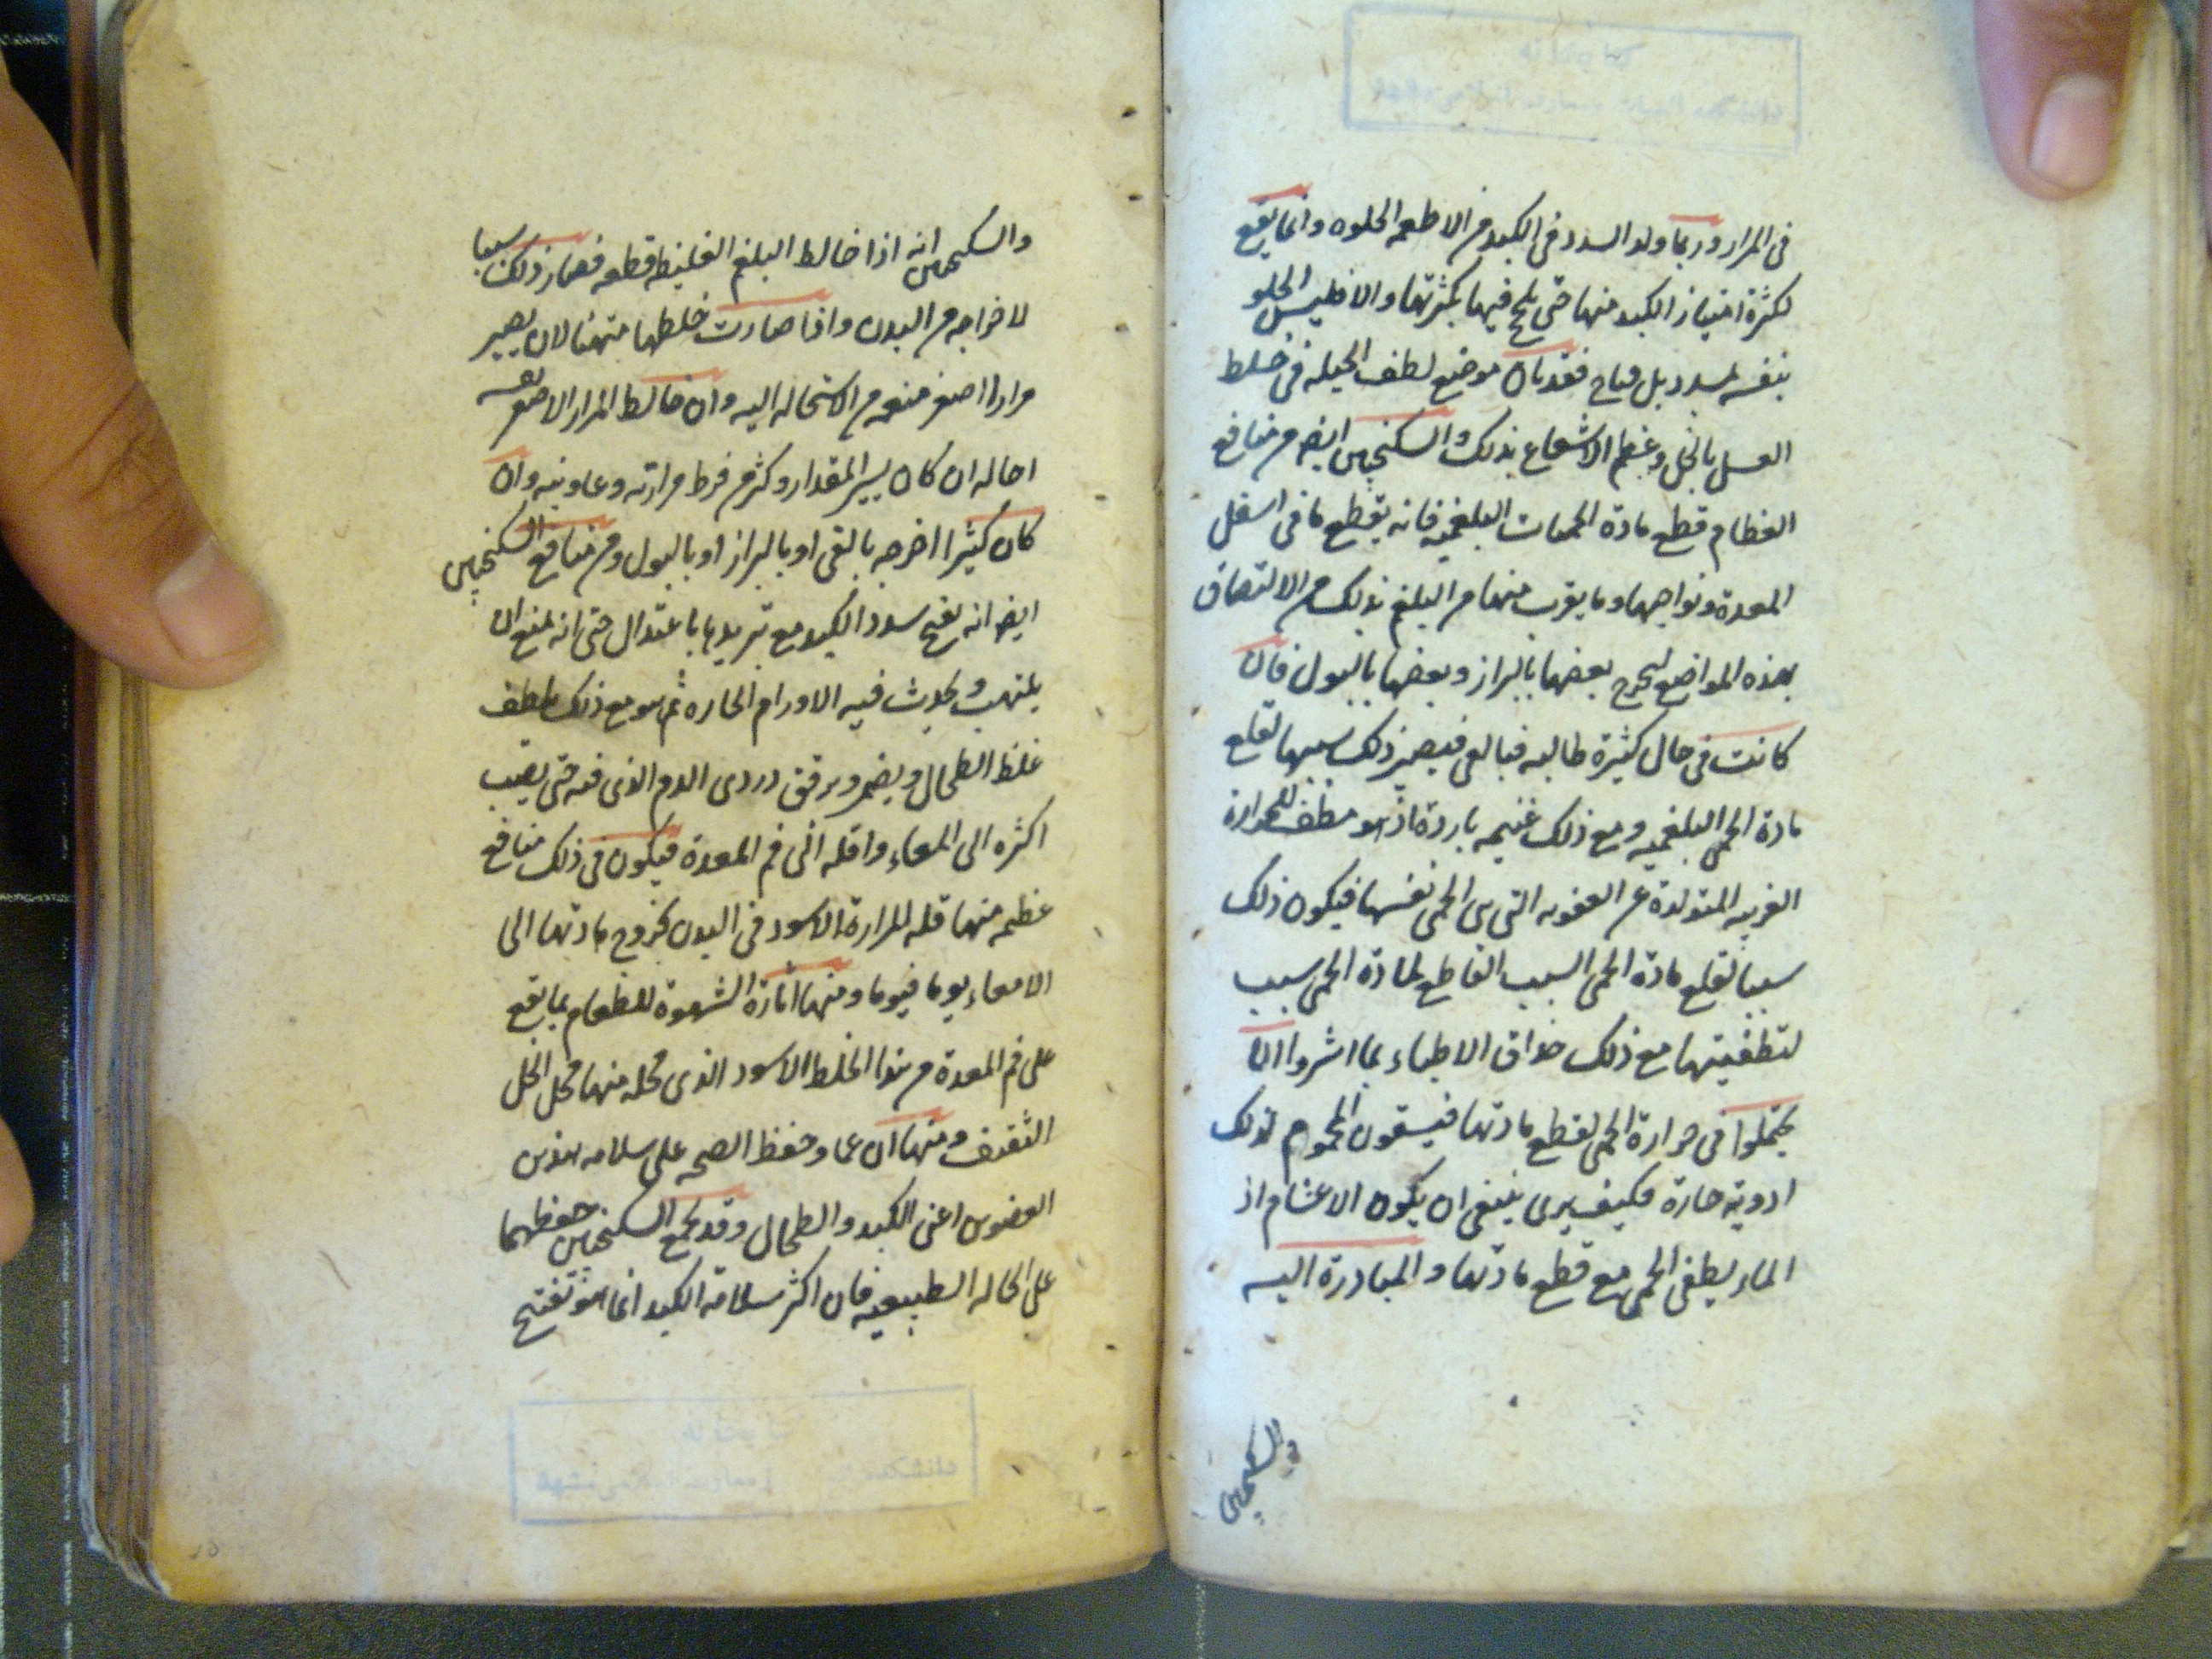 فى المرار وربما ولد السدد فى الكبد من الاطعمه الحلوه وانما يقع
لكثرة امتياز الكبد منها حتى يلج فيها بكثرتها والا فليس الحلو
بنفسه بمسدد بل فتاح فقد بان موضع لطف الحيله فى خلط
العسل بالخل وعظم الانتفاع بذلك والسكنجبين ايضا من منافع
العظام قطع مادة الحميات البلغميه فانه يقطع ما فى اسفل
المعدة ونواحيها وما يقرب منها من البلغم بذلك من الالتصاق
بهذه المواضع ليخرج بعضها بالبراز وبعضها بالبول فان
كانت فى حال كثيرة طالبه فبالقى فيصير ذلك سببها لقلع
مادة الحمى البلغميه ومع ذلك غنيمه باردة اذ هو مطفى للحرارة
الغريبه المتولدة عن العفونه التى هى الحمى نفسها فيكون ذلك
سببا لقلع مادة الحمى السبب القاطع لمادة الحمى سبب
لتطفيتها مع ذلك حذاق الاطباء بما اشروا ان
يحتملوا فى حرارة الحمى لقطع مادتها فيسقون المحموم لذلك
ادوية حارة فكيف يرى ينبغى ان يكون الاغتنام اذ
الماء يطفى الحمى مع قطع مادتها والمبادرة اليه
والسكنجبين
والسكنجبين انه اذا خالط البلغم الغليظ قطعه فصار ذلك سببا
لاخراجه من البدن واذا صادف خلطا متهيئا لان يصير
مرارا اصفر منعه من الاستحاله اليه وان خالط المرار الاصفر نفسه
احاله ان كان يسير المقدار وكثر من فرط مرارته وعاديته وان
كان كثيرا اخرجه بالقى او بالبراز او بالبول ومن منافع السكنجبين
ايضا انه يفتح سدد الكبد مع تبريدها باعتدال حتى انه يمنع ان
يلتهب ويحدث فيه الاورام الحاره ثم هو مع ذلك يلطف
غلظ الطحال ويضمر ويرقق دردى الدم الذى فيه حتى يصب
اكثره الى المعاء واقله الى فم المعدة فيكون فى ذلك منافع
عظيمه منها قله المرارة الاسود فى البدن بخروج مادتها الى
الامعاء يوما فيوما ومنها اثارة الشهوة للطعام بما يقع
على فم المعدة من هذا الخلط الاسود الذى محله منها محل الخل
الثقيف ومنها ان عماد حفظ الصحه على سلامه هذين
العضوين اعنى الكبد والطحال وقد يجمع السكنجبين حفظهما
على الحاله الطبيعيه فان اكثر سلامة الكبد انما هو تفتيح